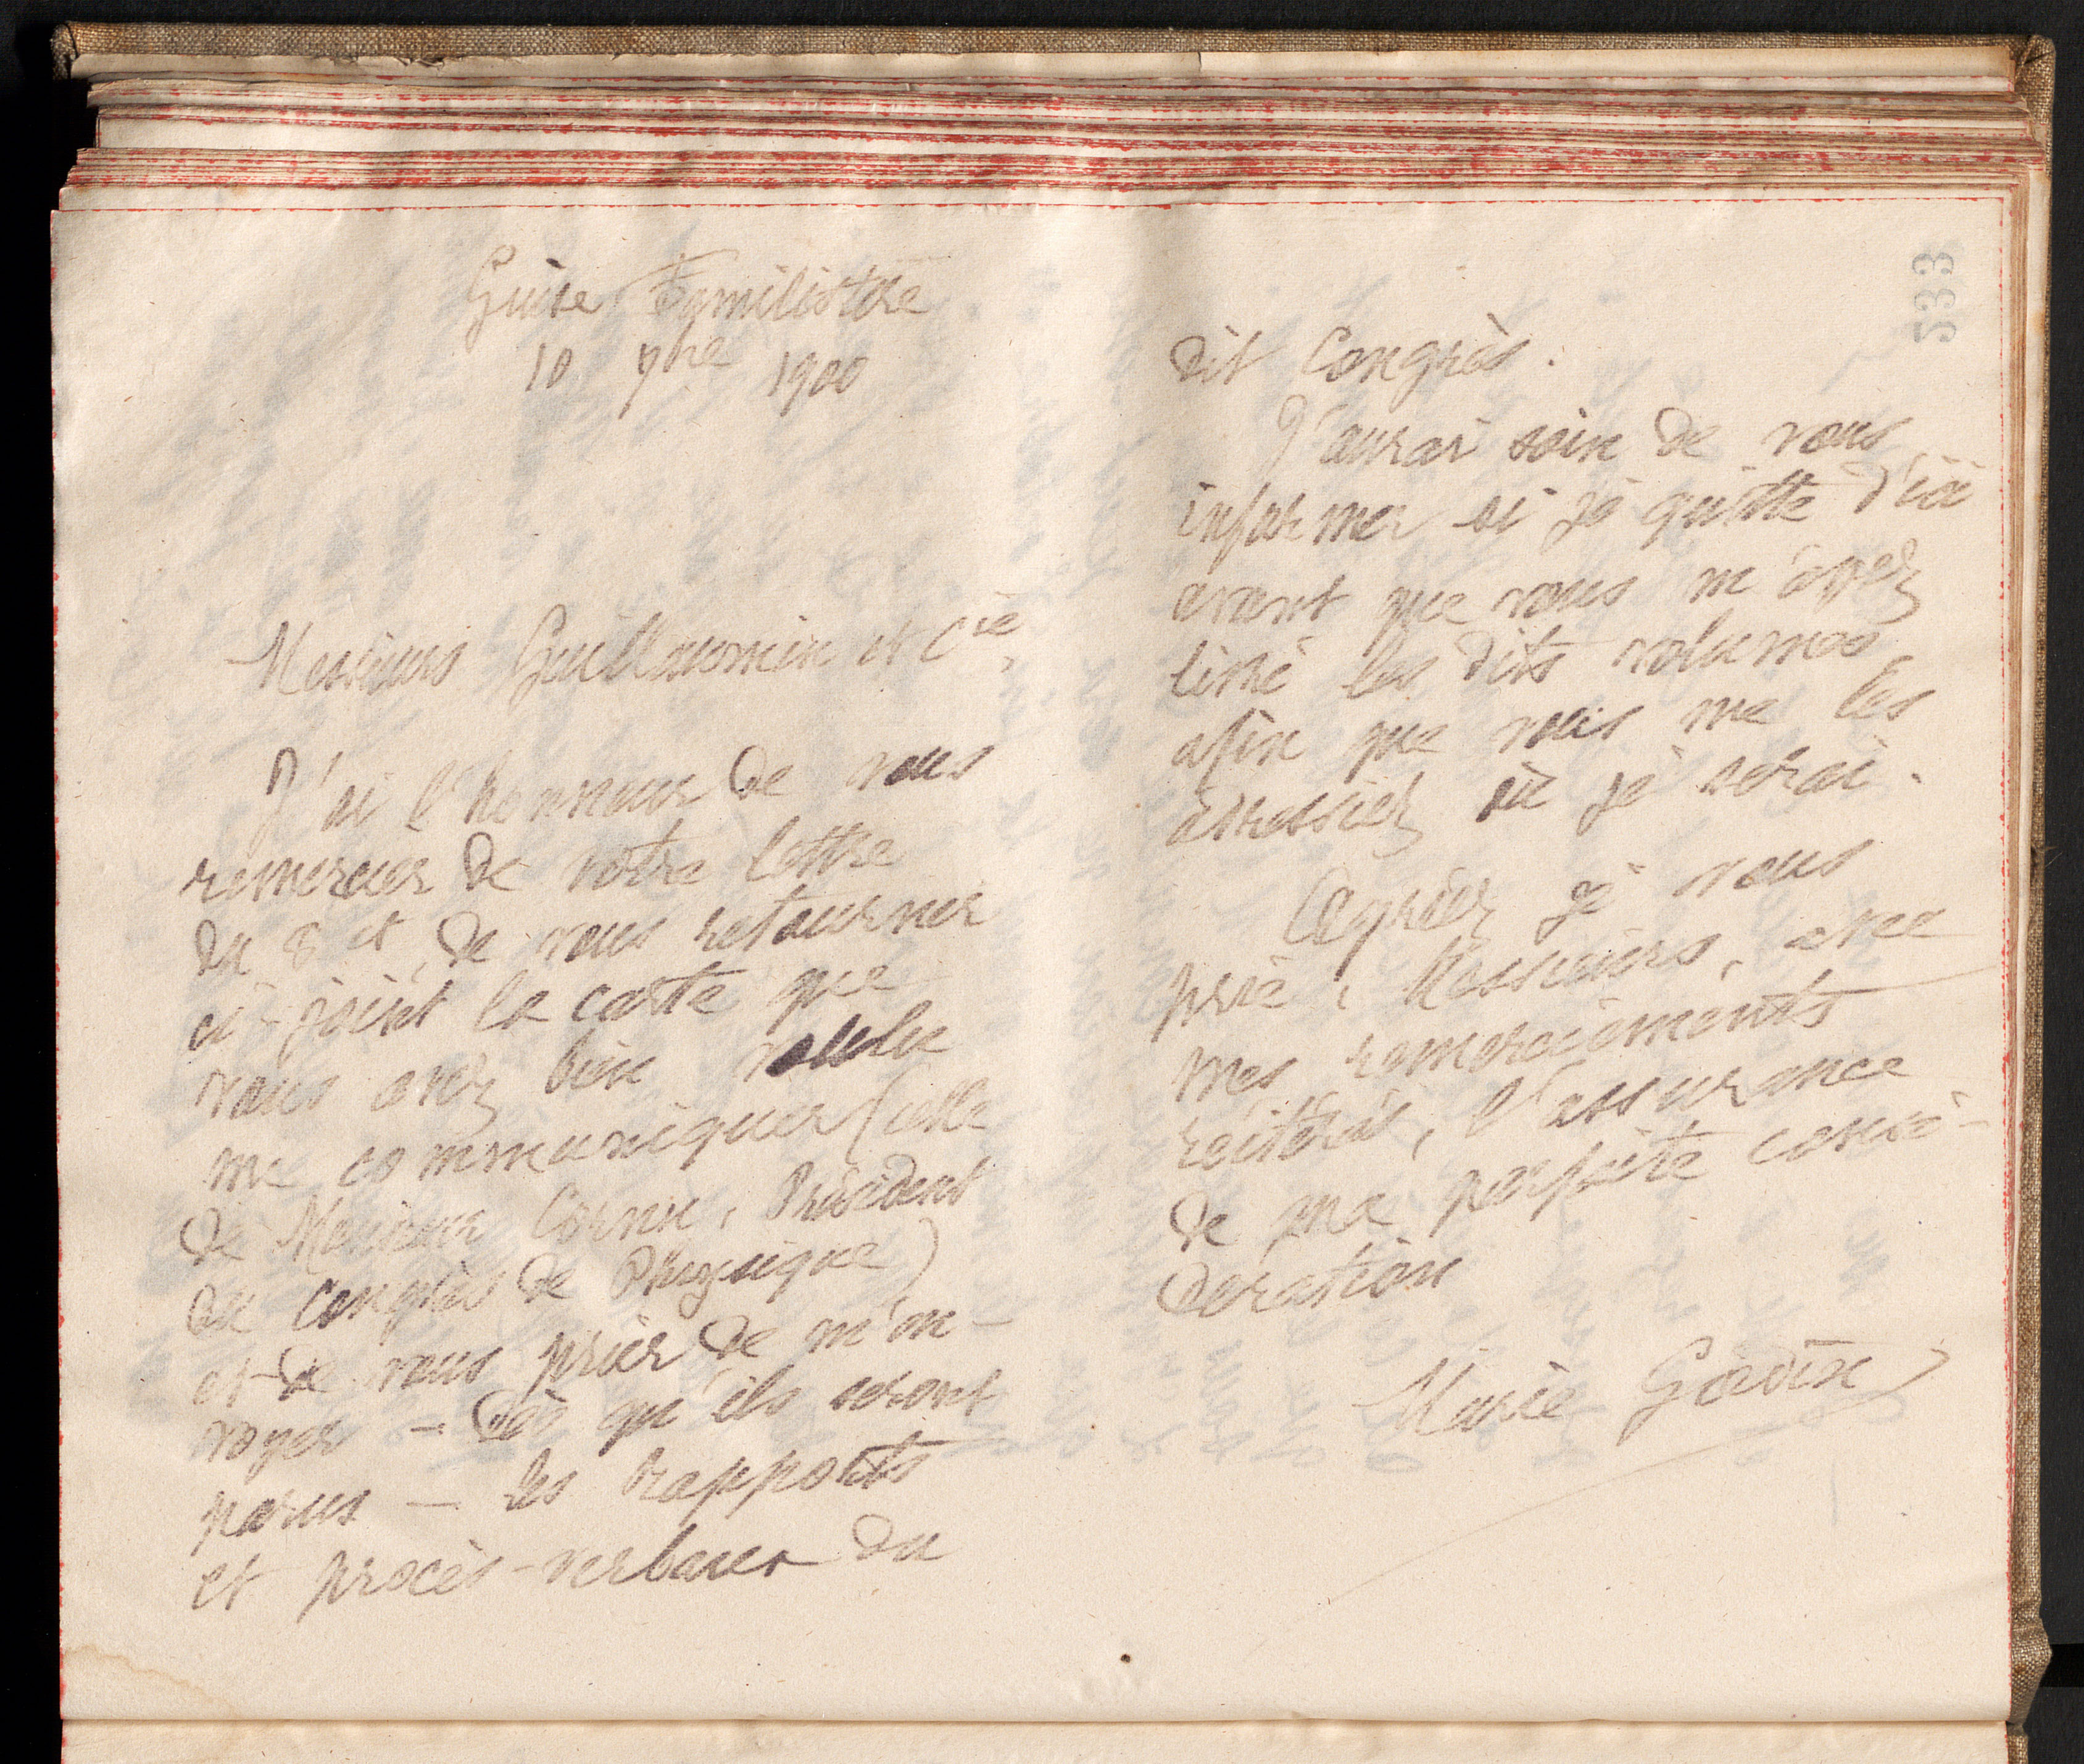 Guise Familistère
10 7bre 1900
Messieurs Guillaumin et Cie,
J'ai l'honneur de vous
remercier de votre lettre
du 8 et de vous retourner
ci-joint la carte que
vous avez bien voulu
me communiquer (celle
de Monsieur Cornu, Président
du Congrès de Physique)
et de vous prier de m'en-
voyer – dès qu'ils seront
parus – les rapports
et procès-verbaux du
233
dit Congrès.
J'aurai soin de vous
informer si je quitte d'ici
avant que vous m'ayez
livré les dits volumes
afin que vous me les
adressiez où je serai.
Agréez je vous
prie, Messieurs, avec
mes remerciements
réitérés, l'assurance
de ma parfaite consi-
dération
Marie Godin